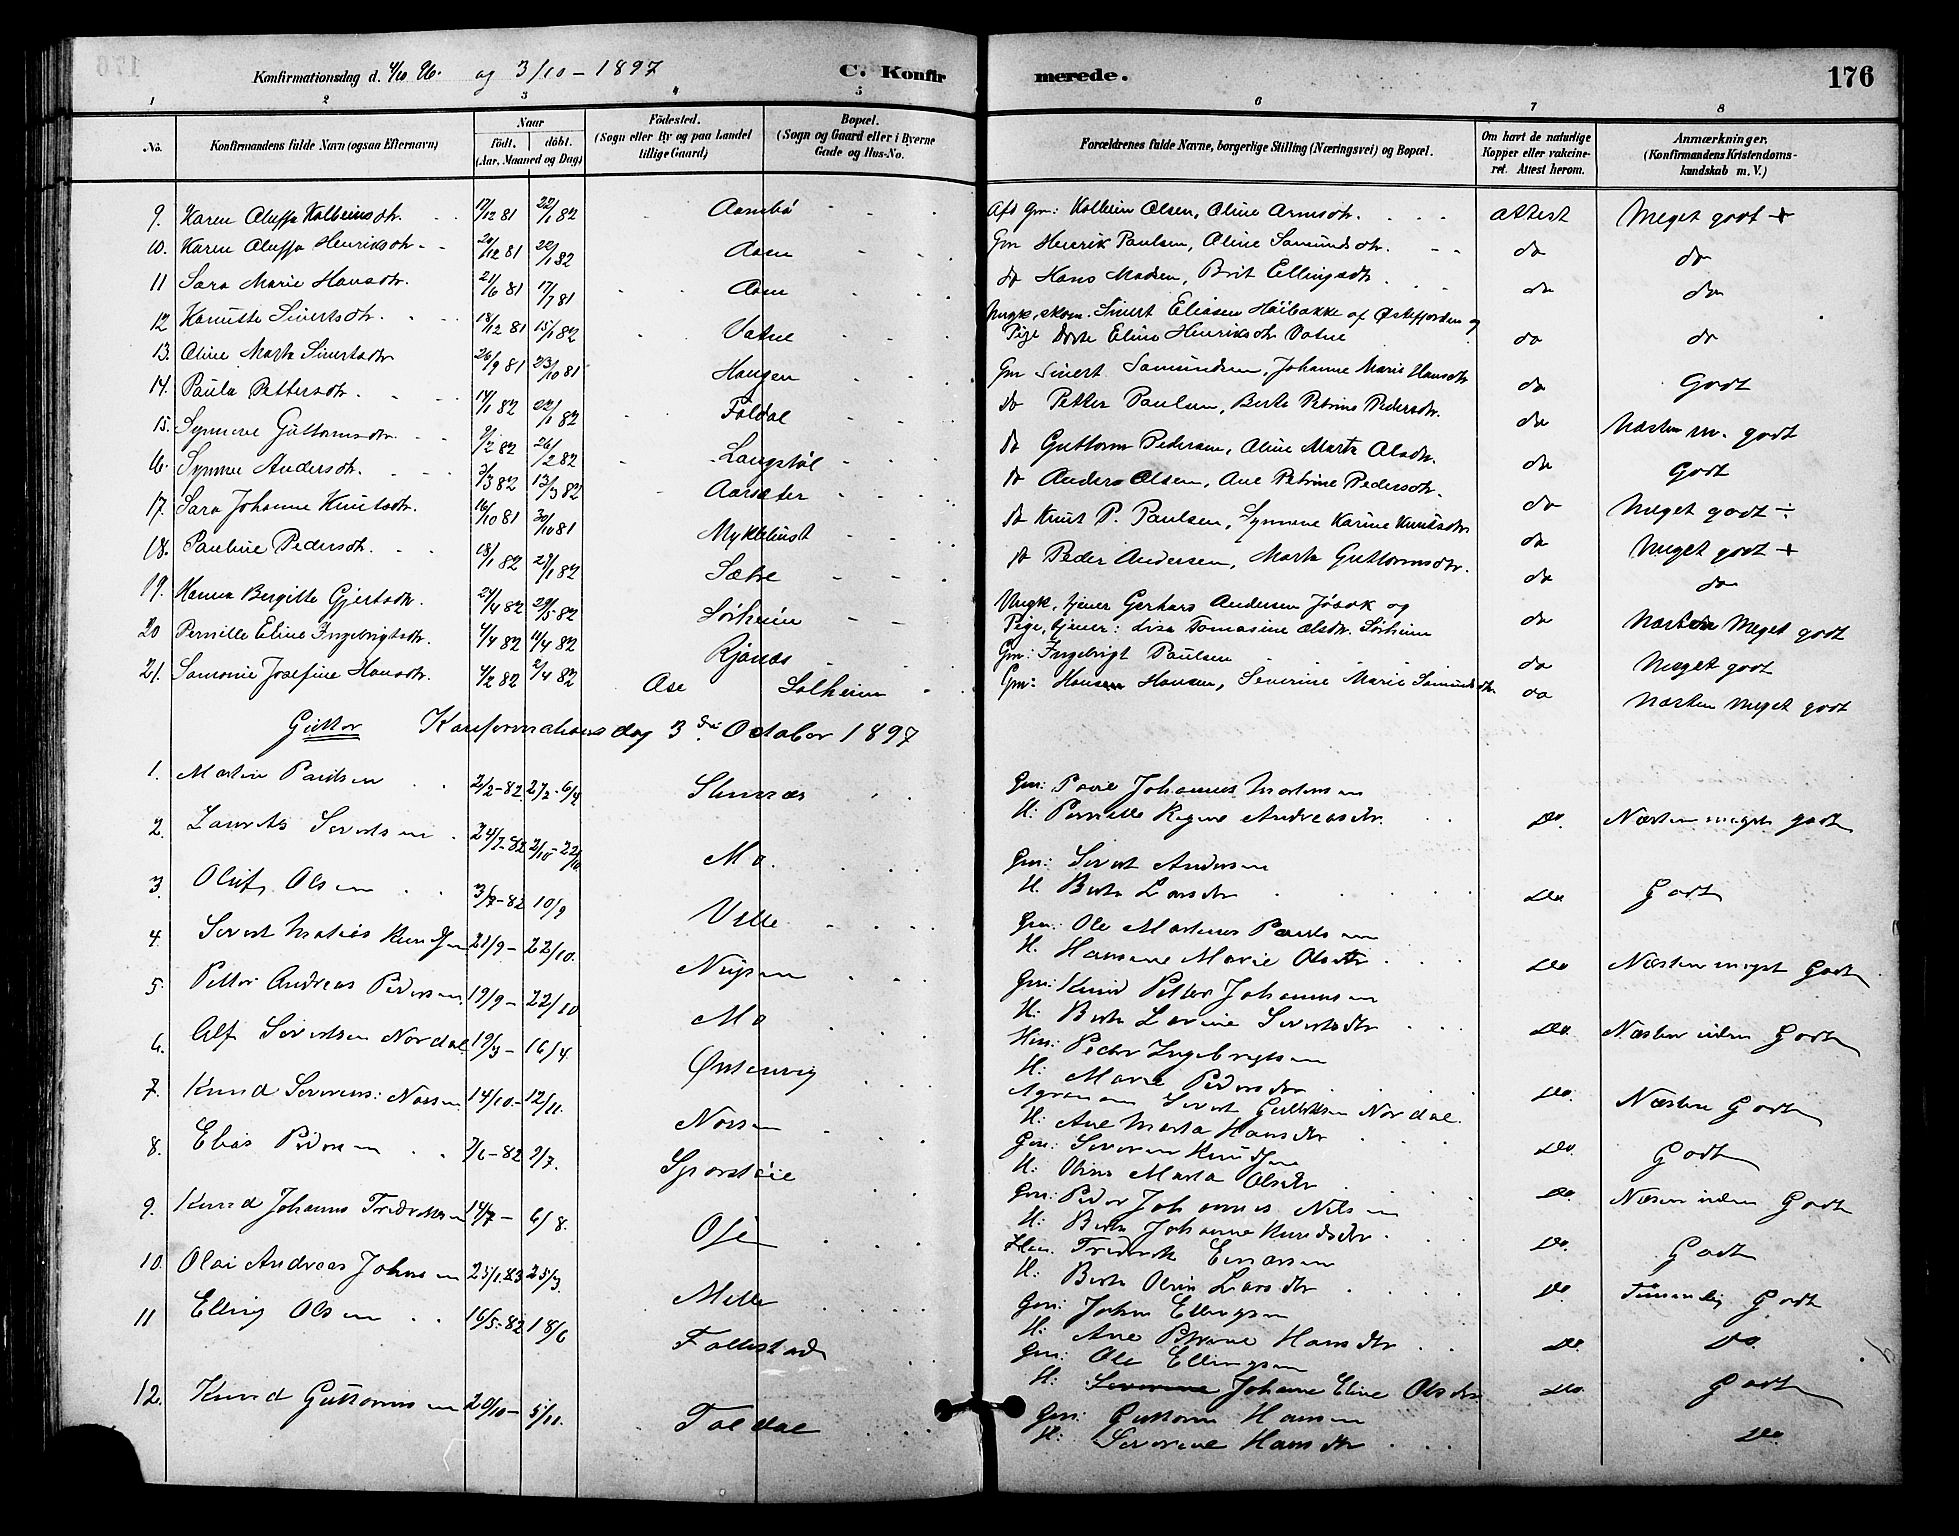 Konfirmationsdag d. 4/10 96. og 3/10 - 1897 C. Konfirmerede. 176
1 2 3 4 5 6 7 8
No. Konfirmandens fulde Navn (ogsaa Efternavn) Naar födt. döbt. (Aar, Maaned og Dag) Födested. (Sogn eller By og paa Landet tillige Gaard) Bopæl. (Sogn og Gaard eller i Byerne Gade og Hus-No. Forældrenes fulde Navne, borgerlige Stilling (Næringsvei) og Bopæl. Om havt de naturlige Kopper eller vakcineret. Attest herom. Anmærkninger. (Konfirmandens Kristendomskundskab m. V.)
9. Karen Oluffa Kolbeinsdtr. 17/12 81 22/1 82 Aambø Afd Gm: Kolbein Olsen, Oline Arnsdtr. attest Meget godt +
10. Karen Oluffa Henriksdtr. 20/12 81 22/1 82 Aam Gm Henrik Paulsen, Oline Samundsdtr. do do
11 Sara Marie Hansdtr. 21/6 81 17/7 81 Aam do Hans Madsen, Brit Ellingsdtr. do do
12 Knutte Sivertsdtr. 18/12 81 15/1 82 Vatne Ungk, skom. Sivert Eliasen Höibakke af Østefjorden og
Pige Dorte Eline Henriksdtr Vatne do do
13. Oline Marta Sivertsdtr 26/9 81 23/10 81 Haugen Gm Sivert Samundsen, Johanne Marie Hansdtr do Godt
14. Paula Pettersdtr. 14/1 82 22/1 82 Foldal do Petter Paulsen, Berte Petrine Pedersdtr. do Næsten m. godt
15. Synneve Guttormsdtr. 9/2 82 26/2 82 Langstøl do Guttorm Pedersen, Oline Marta Olsdtr. do Godt
16. Synneve Andersdtr. 3/3 82 13/3 82 Aarsæter do Anders Olsen, Ane Petrine Pedersdtr. do Meget godt ÷
17. Sara Johanne Knutsdtr. 16/10 81 30/10 81 Myklebust do Knut P. Paulsen, Synneve Karine Knutsdtr do Meget godt +
18. Pauline Pedersdtr. 18/1 82 29/1 82 Sætre do Peder Andersen, Marta Guttormsdtr. do do
19. Hanna Bergitte Gjertsdtr. 24/4 82 29/5 82 Sørheim Ungk, tjener Gerhard Andersen Jøsok og
Pige, tjener: Lisa Tomasine Olsdtr. Sørheim do Næsten Meget godt
20 Pernille Eline Ingebrigtsdtr. 4/4 82 11/4 82 Rjånes Gm: Ingebrigt Paulsen do Meget godt
21. Samonie Josefine Hansdtr. 4/2 82 2/4 82 Ose Solheim Gm: Hans Hansen, Severine Marie Samundsdtr do Næsten Meget godt
Gutter Konfirmationsdag 3die October 1897
1. Martin Paulsen 2/2-82 27/2-6/4 Steinnes Gm: Povel Johannes Martinsen
H: Pernille Regine Andreasdtr. Do. Næsten meget godt
2. Laurits Severtsen 24/7-82 2/10-22/10 Mo. Gm: Severt Andersen
H. Berte Larsdtr Do Godt
3. Oluf Olsen 3/8-82 10/9 Velle Gm: Ole Martinus Paulsen
H. Hansine Marie Olsdtr Do Næsten meget Godt
4. Severt Matias Knudsen 21/9- 22/10. Nupen Gm: Knud Petter Johannesen
H: Berte Lovine Severtsdtr Do. Næsten uden Godt
5. Petter Andreas Pedersen 19/9- 22/10 Mo Hm: Peder Ingebrigtsen
H: Marie Pedersdtr Do. Næsten Godt
6. Alf Severtsen Nordal 19/3- 16/4 Østenvig Agronom Severt Guttormsen Nordal.
H: Ane Marta Hansdtr Do. Godt
7. Knud Severins: Nossen 14/10.- 12/11. Nossen Gm: Severin Knudsen
H. Oline Marta Olsdtr Do. Næsten uden Godt
8. Elias Pedersen 2/6-82 2/7. Sporstøie Gm: Peder Johannes Nilsen
H: Berte Johanne Knudsdtr. Do. Godt
9. Knud Johannes Fredriksen 14/7- 6/8. Ose Hm. Fredrik Einarsen
H. Berte Oline Larsdtr Do Temmelig Godt
10. Olai Andreas Johnsen 25/1.83 25/3. Melle Gm: John Ellingsen
H: Ane Petrine Hansdtr Do. Do.
11 Elling Olsen 16/5-82 18/6 Follestad Gm: Ole Ellingsen
H: Johane Eline Olsdtr Do. Godt
12. Knud Guttormsen 20/10- 5/11. Foldal Gm: Guttorm Hansen
H: Severine Hansdtr Do